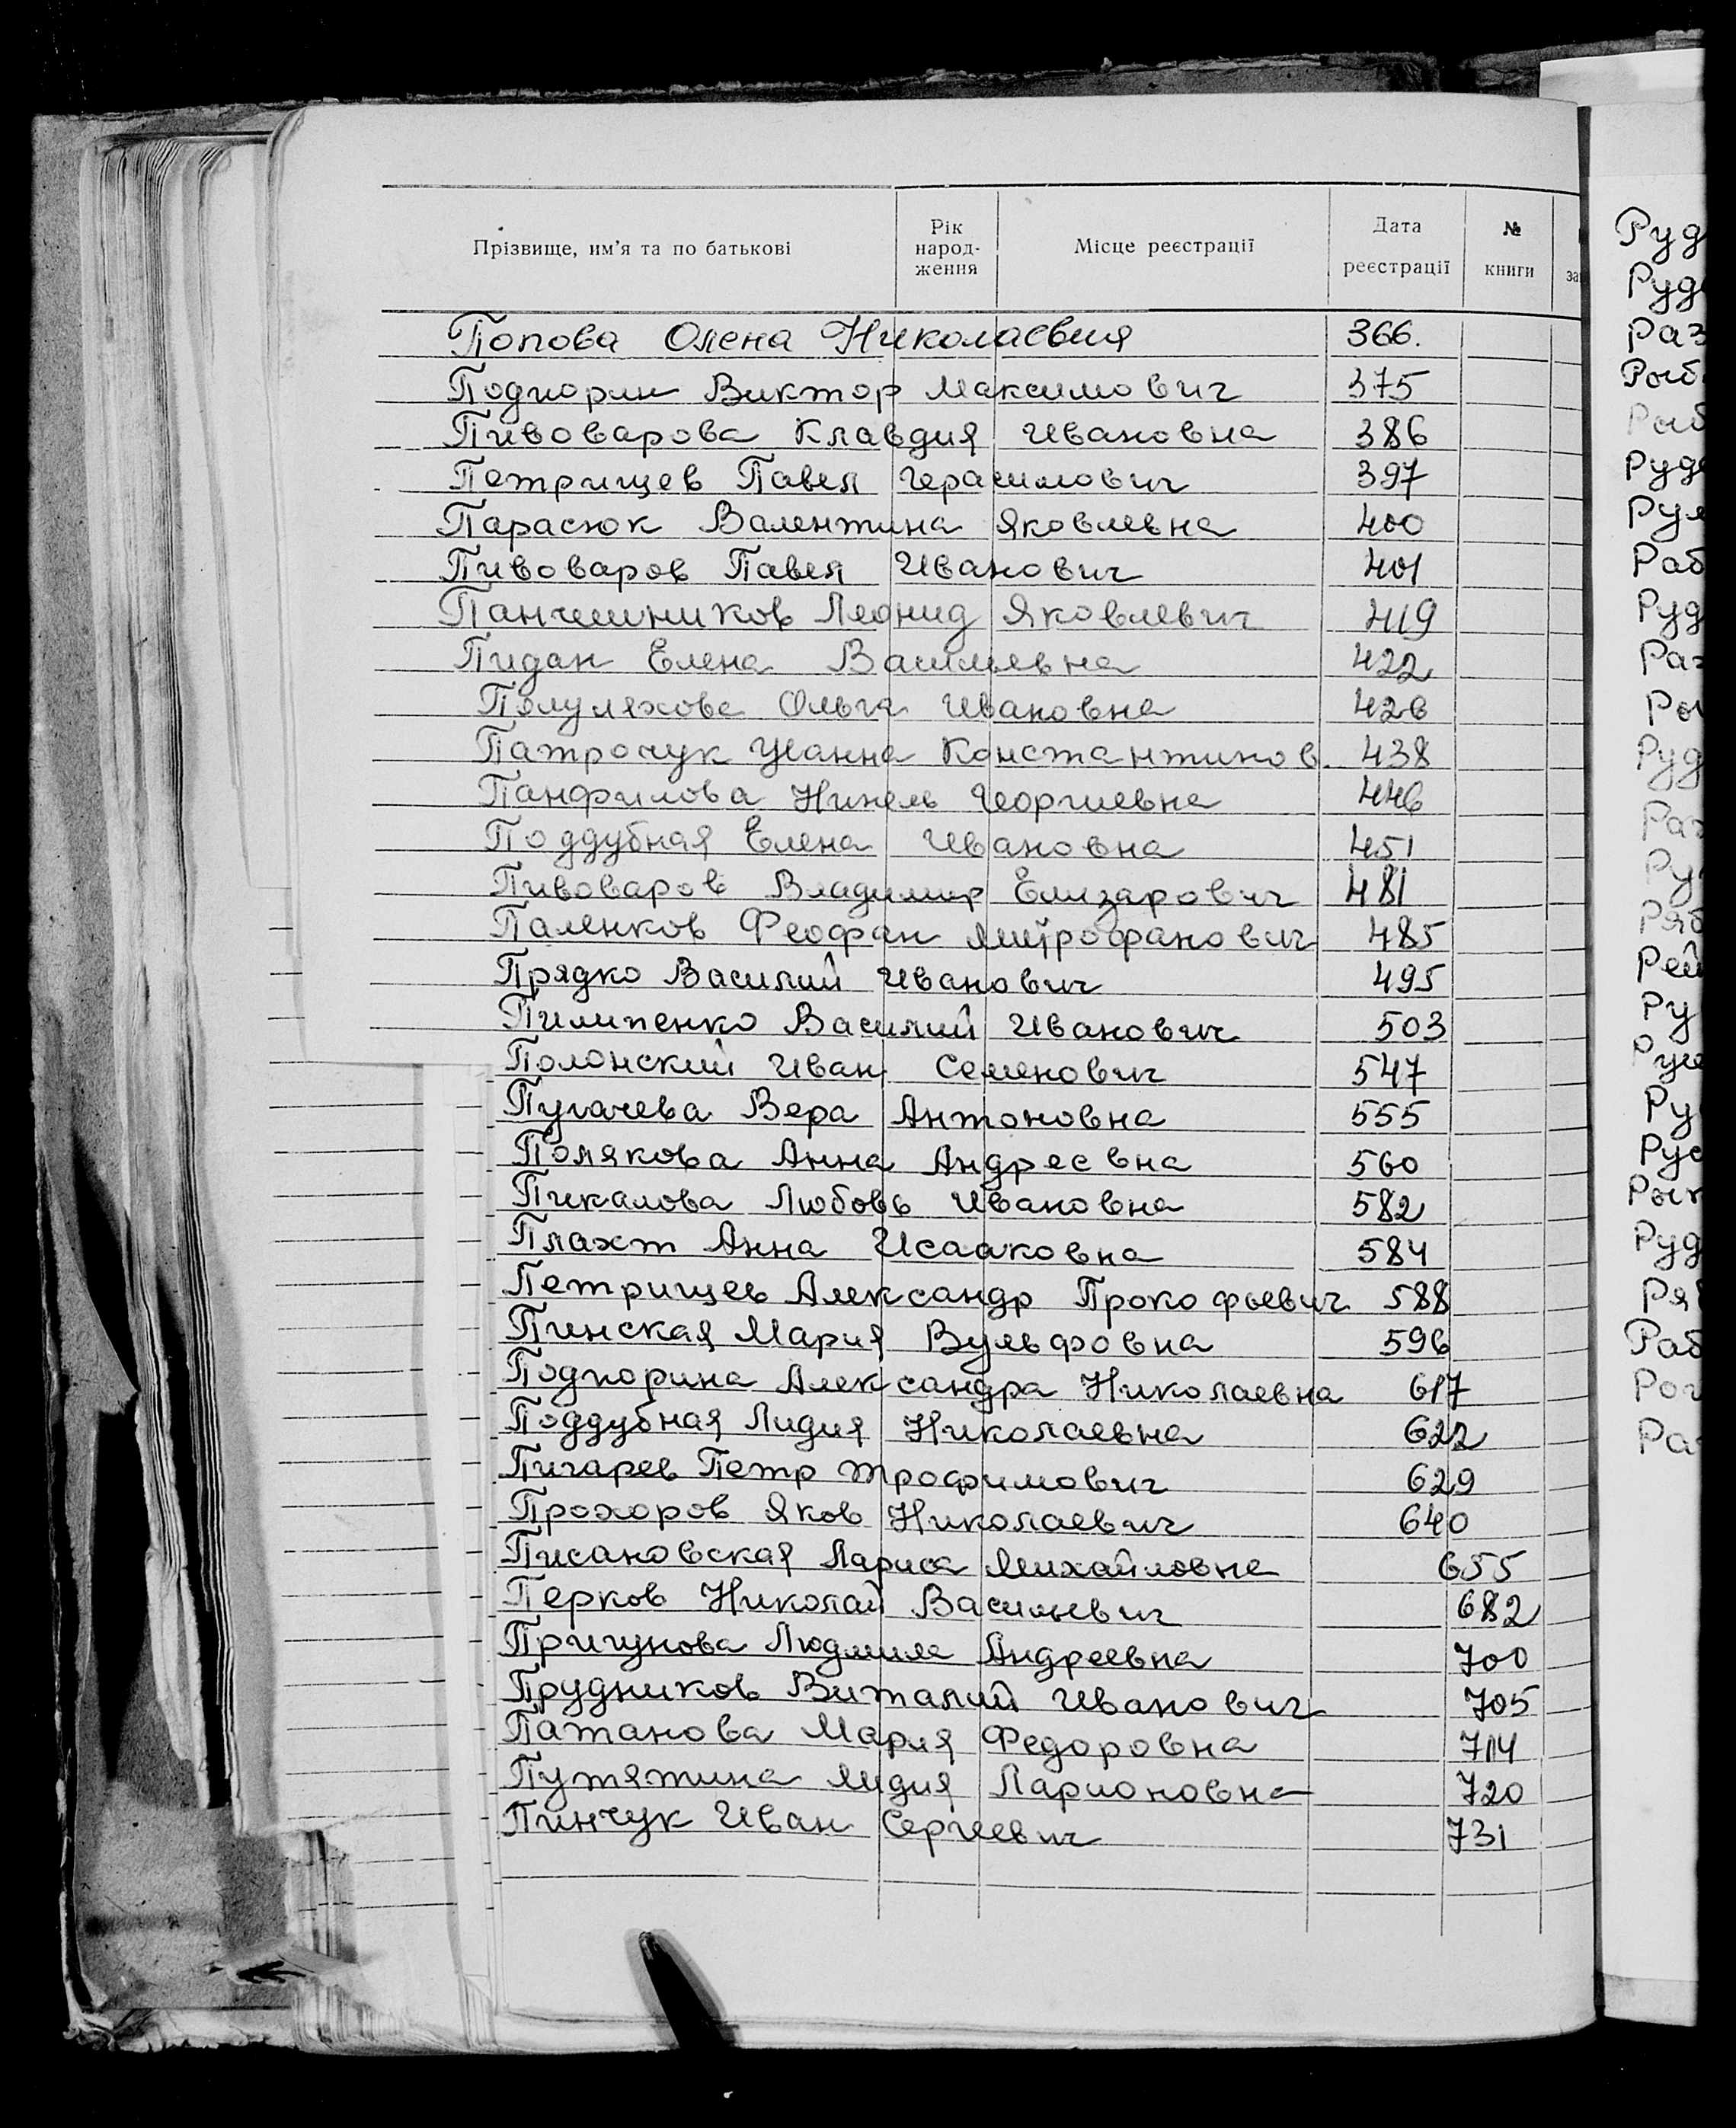 Прізвище, им'я та по батькові Рік народ-ження Місце реєстрації Дата реєстрації № книги
Попова Олена Николаевня 366.
Подгорин Виктор Максимович 375
Пивоварова Клавдия Ивановна 386
Петрищев Павел Герасимович 397
Парасюк Валентина Яковлевна 400
Пивоваров Павел Иванович 401
Панчешников Леонид Яковлевич 419
Пидан Елена Васильевна 422
Полуляхова Ольга Ивановна 426
Патрочук Жанна Константинов. 438
Панфилова Нинель Георгиевна 446
Поддубная Елена Ивановна 451
Пивоваров Владимир Елизарович 481
Паленков Феофан Митрофанович 485
Прядко Василий Иванович 495
Пилипенко Василий Иванович 503
Полонский Иван Семенович 547
Пугачева Вера Антоновна 555
Полякова Анна Андреевна 560
Пикалова Любовь Ивановна 582
Плахт Анна Исааковна 584
Петрищев Александр Прокофьевич 588
Пинская Мария Вульфовна 596
Подгорина Александра Николаевна 617
Поддубная Лидия Николаевна 622
Пигарев Петр Трофимович 629
Прохоров Яков Николаевич 640
Писановская Лариса Михайловна 655
Перков Николай Васильевич 682
Пригунова Людмила Андреевна 700
Прудников Виталий Иванович 705
Патанова Мария Федоровна 714
Путятина Лидия Ларионовна 720
Пинчук Иван Сергеевич 731